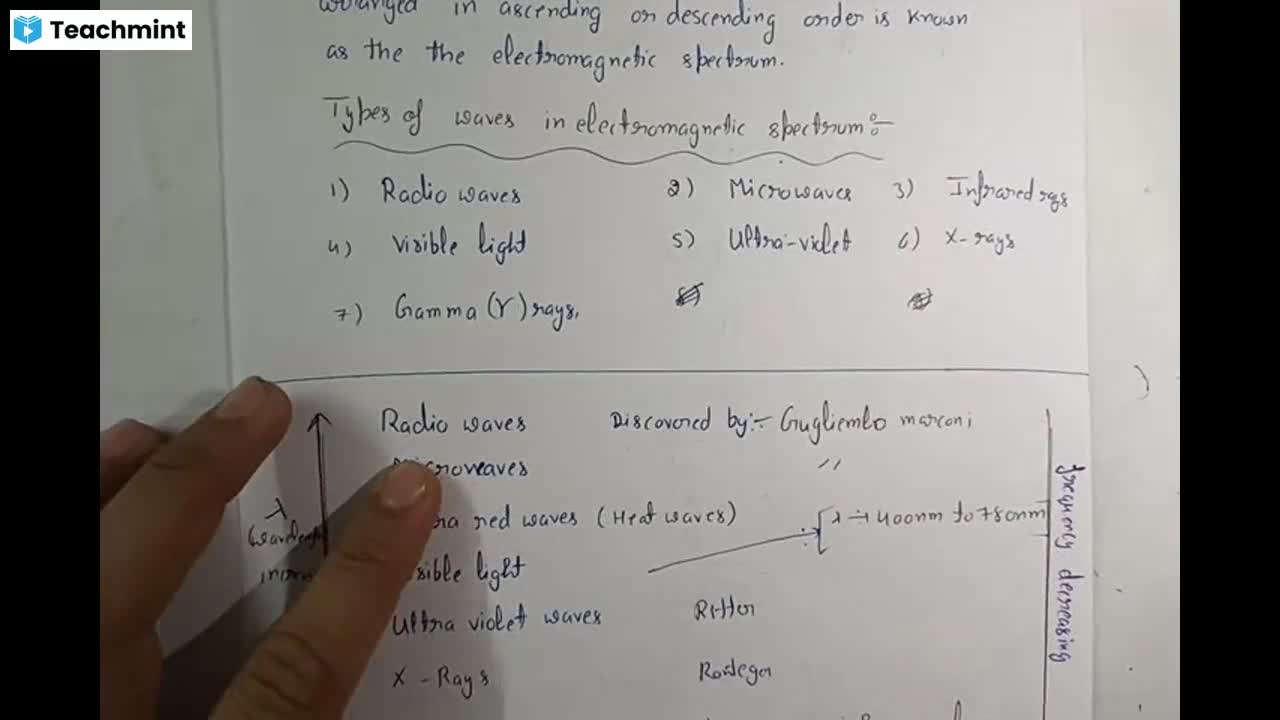 Teachmint
in ascending or descending order is known
as the the electromagnetic spectrum.
Types of waves in electromagnetic spectrum:-
1) Radio waves 2) Microwaves 3) Infrared rays
4) Visible light 5) Ultra-violet 6) X-rays
7) Gamma (γ) rays,
Radio waves Discovered by:- Gugliemlo marconi
Microwaves "
red waves (Heat waves) λ → 400nm to 780nm
λ
light
Ultra violet waves Ritter
X-Rays
frequency decreasing